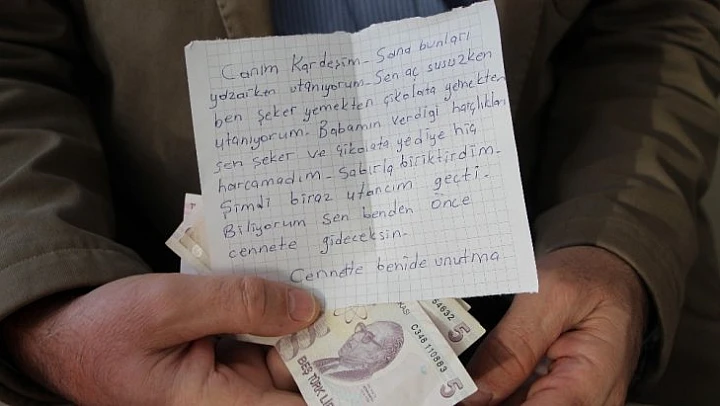 Canım Kardeşim_ Sana bunları
yazarken utanıyorum_ Sen aç susuzken
ben şeker yemekten çikolata yemekten
utanıyorum. Babamın verdiği harçlıkları
sen şeker ve çikolata yediye hiç
harcamadım_ Sabırla biriktirdim_
Şimdi biraz utancım geçti_
Biliyorum sen benden önce
cennete gideceksin_
Cennette benide unutma_
C346110883
5
BEŞ TÜRK LİRASI
64632
5